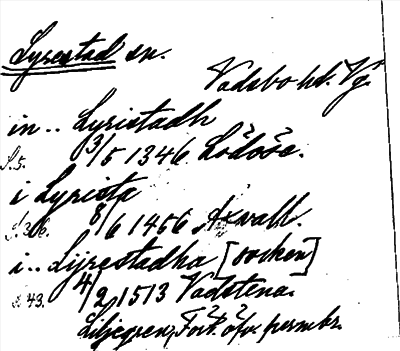 Lyrestad sn.
Vadsbo hd. Vg.
in.. Lyristadh
S. 5. 3/5 1346 Lödöse.
i Lyrista
8/6 1456 Axvall.
i.. Lijrestadha [socken]
S. 43. 4/2 1513 Vadstena.
Liljegren, Fört. öfv. permbr.